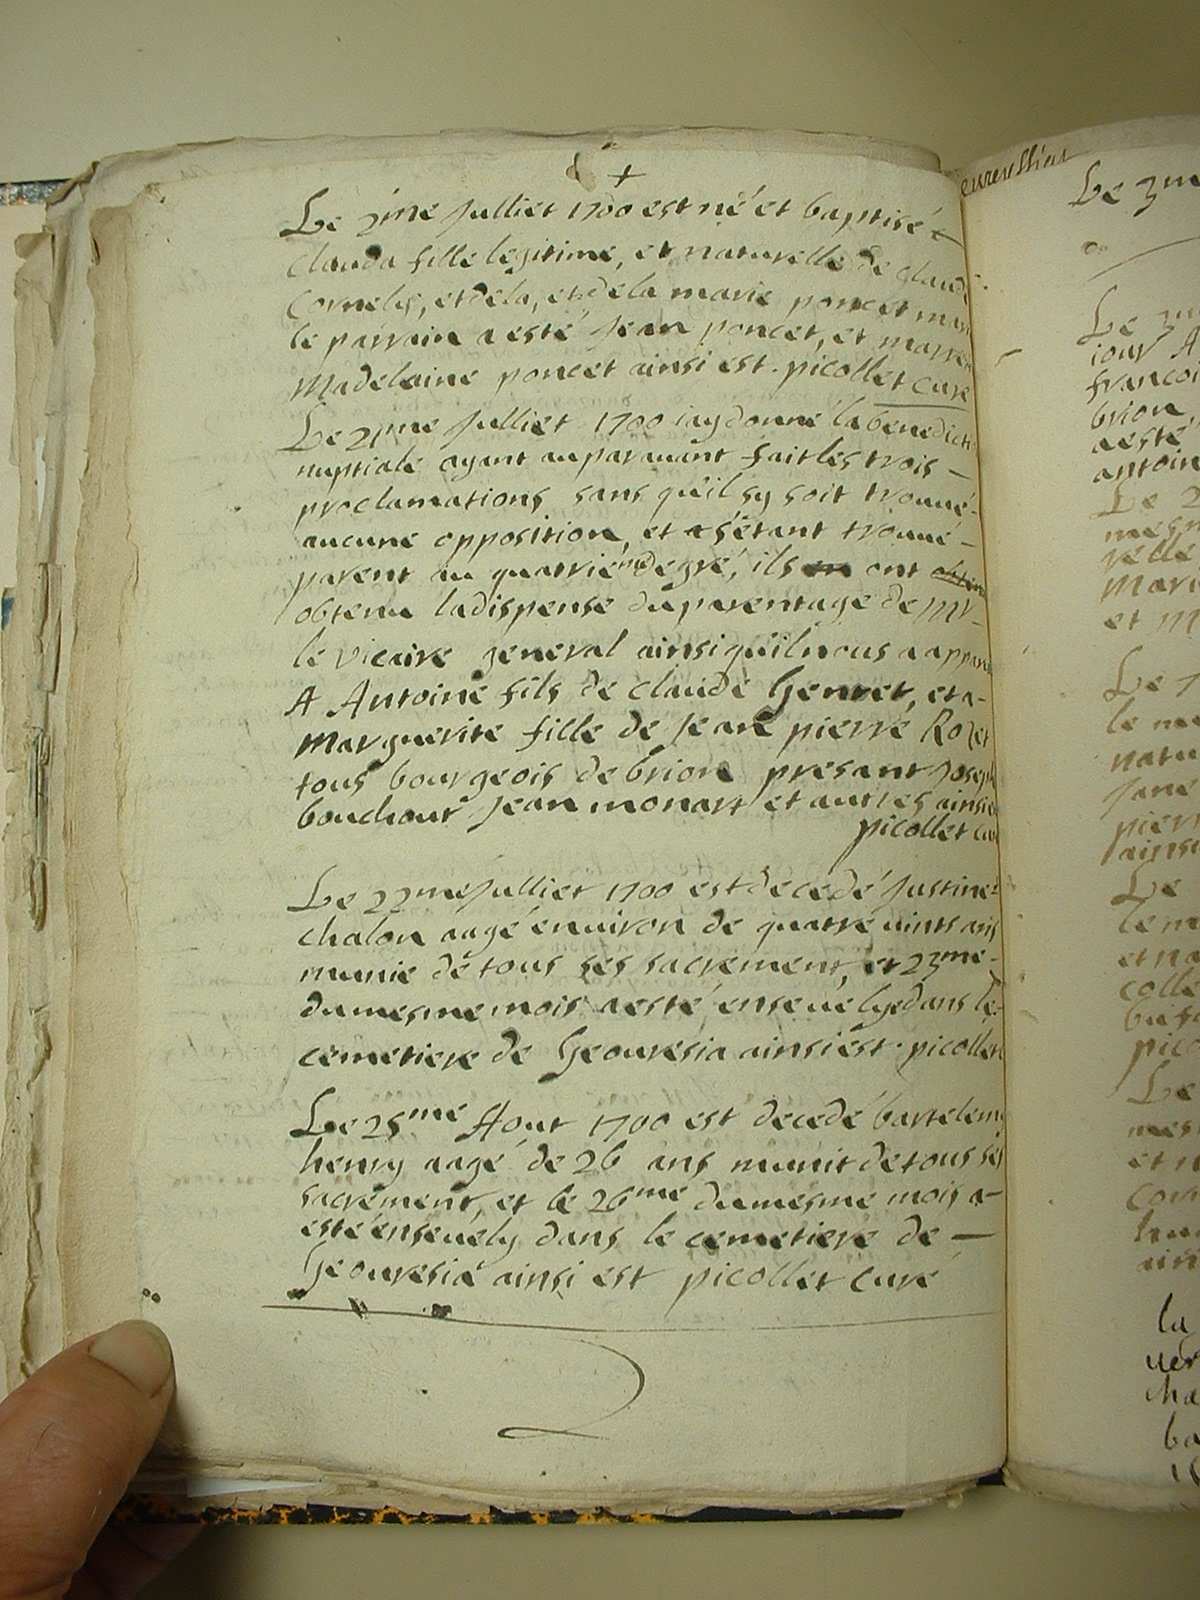 Le 2me Julliet 1700 est né et baptisé
clauda fille legitime, et naturelle de claude
Cornely, et dela, et dela marie poncet
le parrain a esté Jean poncet, et marr
Madelaine poncet ainsi est. picollet curé
Le 21me Julliet 1700 iay donné la benedicti
nuptiale ayant auparauant fait les trois –
proclamations sans quil sy soit trouué –
aucune opposition, et s'étant trouué –
parent au quatrieme degré, ils ont
obtenu la dispense du parentage de Mr –
le vicaire general ainsi quil nous a appar
A Antoine fils de claude Genret, et a –
Marguerite fille de Jean pierre Rozet
tous bourgeois de brion presant Joseph
bouchout Jean monart et autres ainsi
picollet cu
Le 22me Julliet 1700 est decedé Justine
chalon aagé enuiron de quatre uints ans
munie de tous ses sacrement, et 23me –
du mesme mois a esté enseuelye dans le
cemetiere de Geouresia ainsi est. picollet
Le 25me Aout 1700 est decedé bartelem
henry aagé de 26 ans munit de tous ses
sacrement, et le 26me du mesme mois a –
esté enseuely dans le cemetiere de –
Geouresia ainsi est picollet curé
Le 3me
Le
iour A
francoi
brion
a esté
antoin
Le 2
mesm
relle
Mari
et M
Le
le me
natu
Jane
pierr
ainsi
Le
le m
et na
colle
picol
Le
mes
et n
ain
la
uer
cha
ba